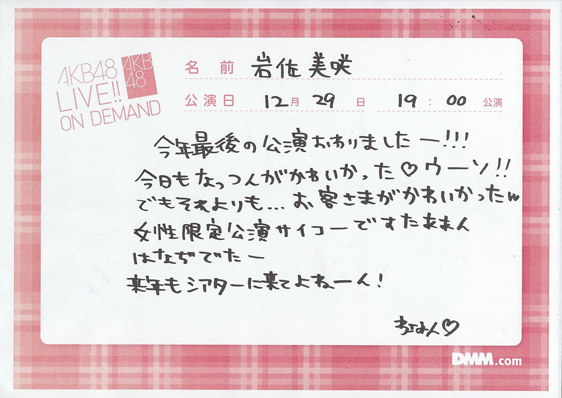 AKB48
LIVE!!
ON DEMAND
AKB
48
名前 岩佐美咲
公演日 12月 29日 19:00 公演
今年最後の公演おわりましたー!!!
今日もなっつんがかわいかった♡ウーソ!!
でもそれよりも...お客さまがかわいかったw
女性限定公演サイコーですたわまん
はなぢでたー
来年もシアターに来てよねーん!
わさみん♡
DMM.com